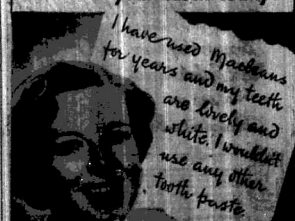 I have used Macleans
for years and my teeth
are lively and
white. I wouldn't
use any other
tooth paste.